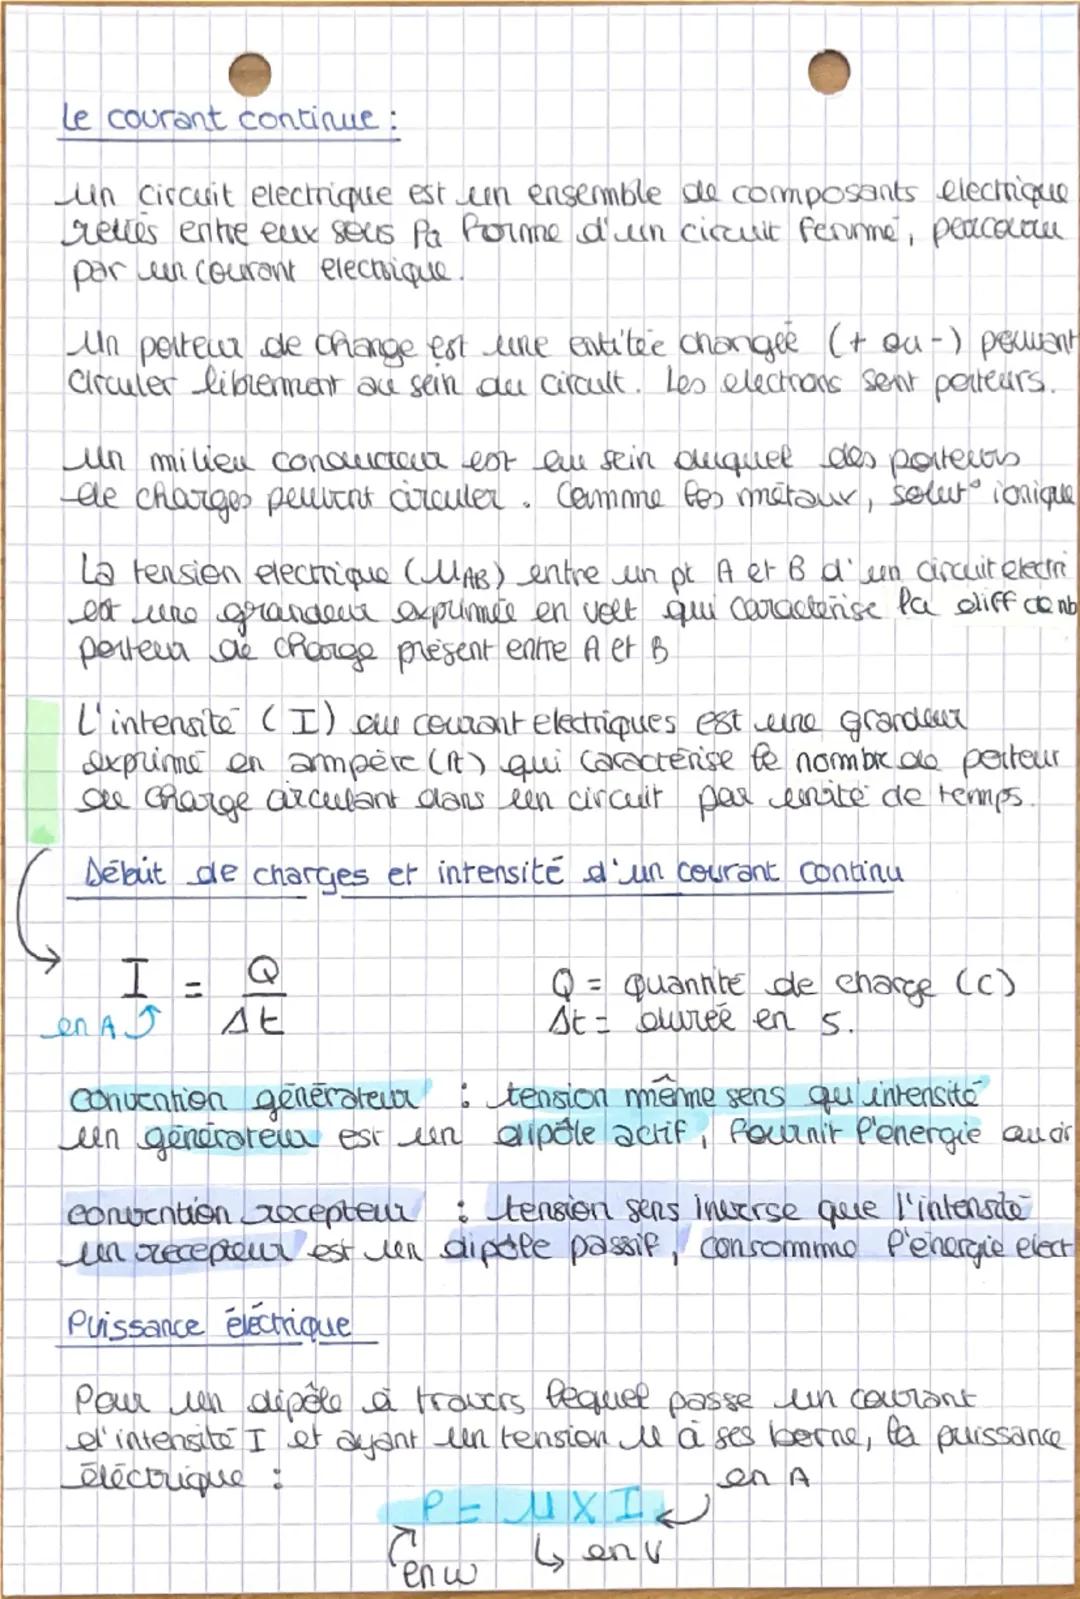 Le courant continue :
Un circuit electrique est un ensemble de composants electrique
reliés entre eux sous la forme d'un circuit fermé, parcouru
par un courant electrique.
Un porteur de charge est une entitée chargée (+ ou -) pouvant
circuler librement au sein du circuit. Les electrons sont porteurs.
Un milieu conducteur est au sein duquel des porteurs
de charges peuvent circuler. Comme les métaux, solut° ionique
La tension electrique (UAB) entre un pt A et B d'un circuit electri
est une grandeur exprimée en volt qui caractérise la diff de nb
porteur de charge présent entre A et B
L'intensité (I) du courant electriques est une grandeur
exprimé en ampère (A) qui caractérise le nombre de porteur
de charge circulant dans un circuit par unité de temps.
Débit de charges et intensité d'un courant continu
I = Q / Δt
en A
Q = quantité de charge (C)
Δt = durée en s.
convention générateur : tension même sens qu'intensité
un générateur est un dipôle actif, fournit l'énergie au cir
convention recepteur : tension sens inverse que l'intensité
un recepteur est un dipôle passif, consomme l'énergie elect
Puissance éléctrique
Pour un dipôle à travers lequel passe un courant
d'intensité I et ayant un tension U à ses borne, la puissance
éléctrique :
en A
P = U X I
en W
en V